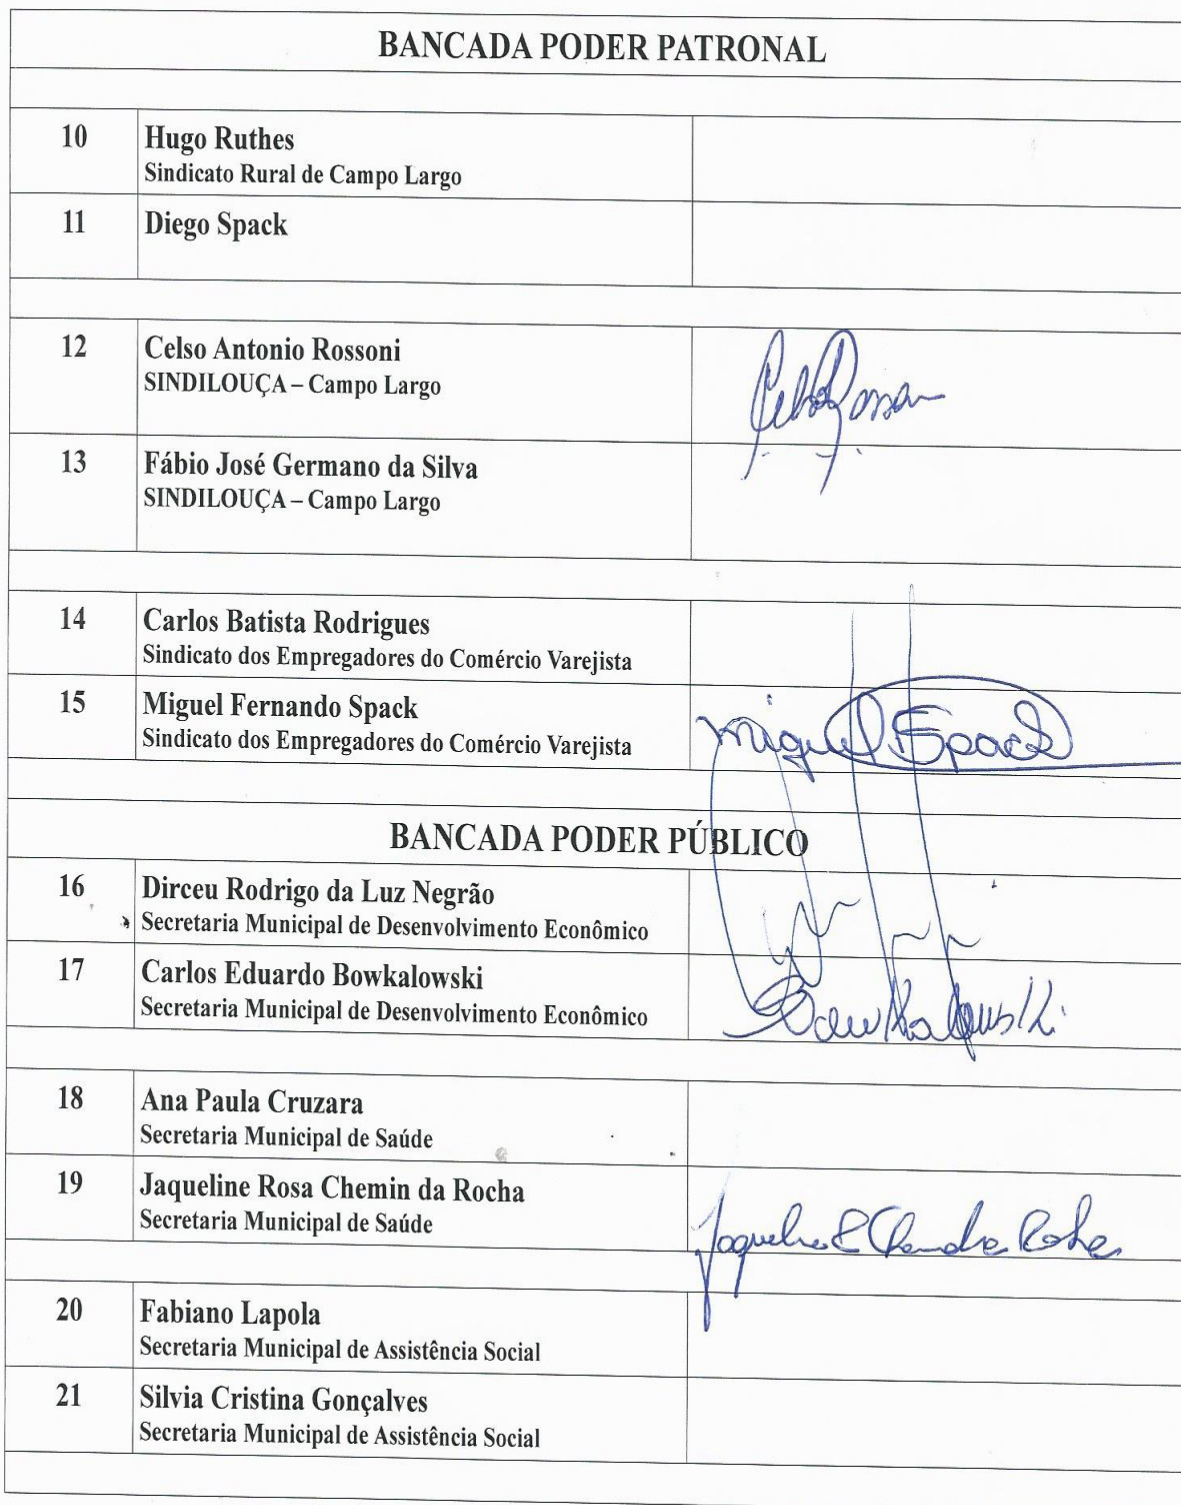 BANCADA PODER PATRONAL
10 Hugo Ruthes
Sindicato Rural de Campo Largo
11 Diego Spack
12 Celso Antonio Rossoni
SINDILOUÇA – Campo Largo
13 Fábio José Germano da Silva
SINDILOUÇA – Campo Largo
14 Carlos Batista Rodrigues
Sindicato dos Empregadores do Comércio Varejista
15 Miguel Fernando Spack
Sindicato dos Empregadores do Comércio Varejista
Miguel F Spack
BANCADA PODER PÚBLICO
16 Dirceu Rodrigo da Luz Negrão
Secretaria Municipal de Desenvolvimento Econômico
17 Carlos Eduardo Bowkalowski
Secretaria Municipal de Desenvolvimento Econômico
18 Ana Paula Cruzara
Secretaria Municipal de Saúde
19 Jaqueline Rosa Chemin da Rocha
Secretaria Municipal de Saúde
20 Fabiano Lapola
Secretaria Municipal de Assistência Social
21 Silvia Cristina Gonçalves
Secretaria Municipal de Assistência Social